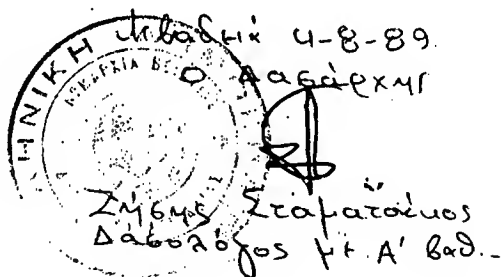 Λιβαδειά 4-8-89
Ο Δασάρχης
ΗΝΙΚΗ
Ζήσης Σταματάκος
Δασολόγος με Α' βαθ.